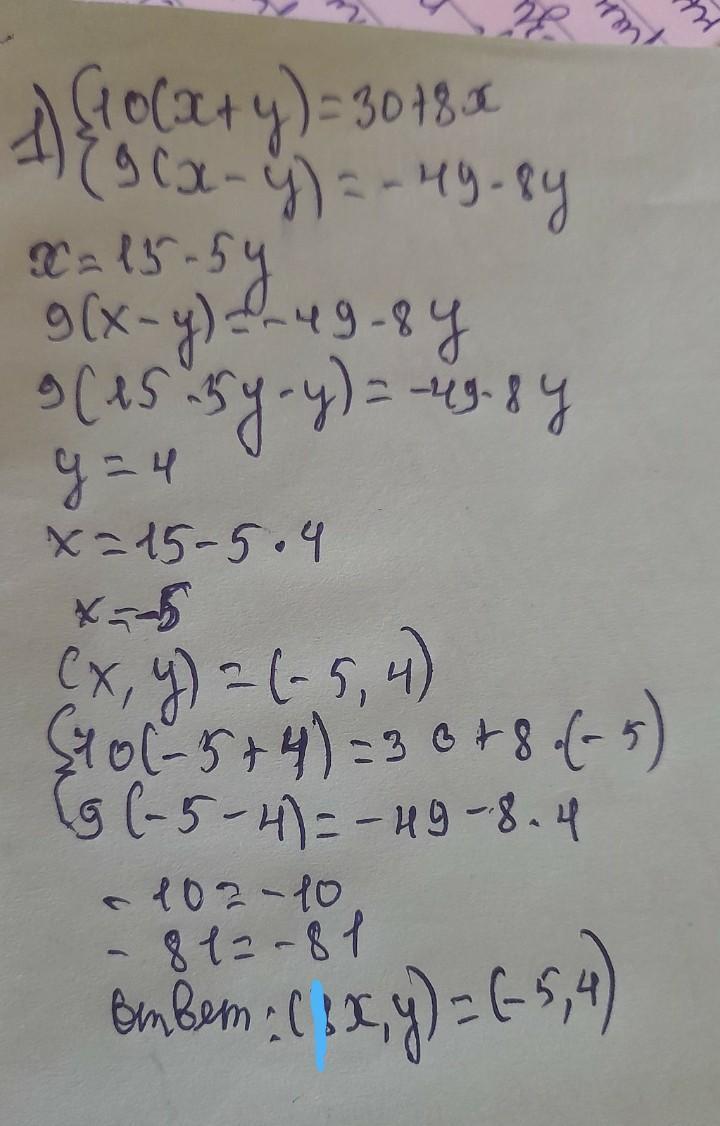 1) {10(x+y)=30+8x
{9(x-y)=-49-8y
x=15-5y
9(x-y)=-49-8y
9(15-5y-y)=-49-8y
y=4
x=15-5·4
x=-5
(x,y)=(-5,4)
{10(-5+4)=30+8·(-5)
{9(-5-4)=-49-8·4
-10=-10
-81=-81
ответ:(x,y)=(-5,4)